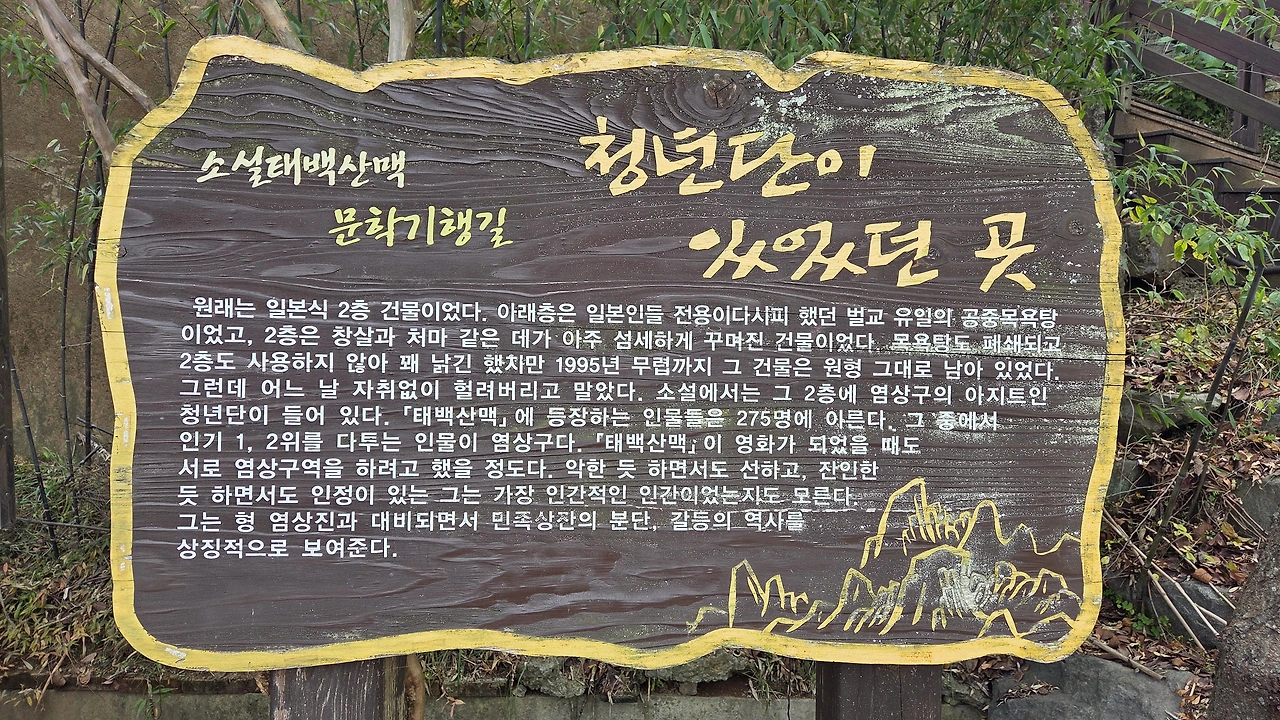 소설태백산맥
문학기행길
청년단이
있었던 곳
원래는 일본식 2층 건물이었다. 아래층은 일본인들 전용이다시피 했던 벌교 유일의 공중목욕탕
이었고, 2층은 창살과 처마 같은 데가 아주 섬세하게 꾸며진 건물이었다. 목욕탕도 폐쇄되고
2층도 사용하지 않아 꽤 낡긴 했지만 1995년 무렵까지 그 건물은 원형 그대로 남아 있었다.
그런데 어느 날 자취없이 헐려버리고 말았다. 소설에서는 그 2층에 염상구의 아지트인
청년단이 들어 있다. 『태백산맥』에 등장하는 인물들은 275명에 이른다. 그 중에서
인기 1, 2위를 다투는 인물이 염상구다. 『태백산맥』이 영화가 되었을 때도
서로 염상구역을 하려고 했을 정도다. 악한 듯 하면서도 선하고, 잔인한
듯 하면서도 인정이 있는 그는 가장 인간적인 인간이었는지도 모른다.
그는 형 염상진과 대비되면서 민족상잔의 분단, 갈등의 역사를
상징적으로 보여준다.